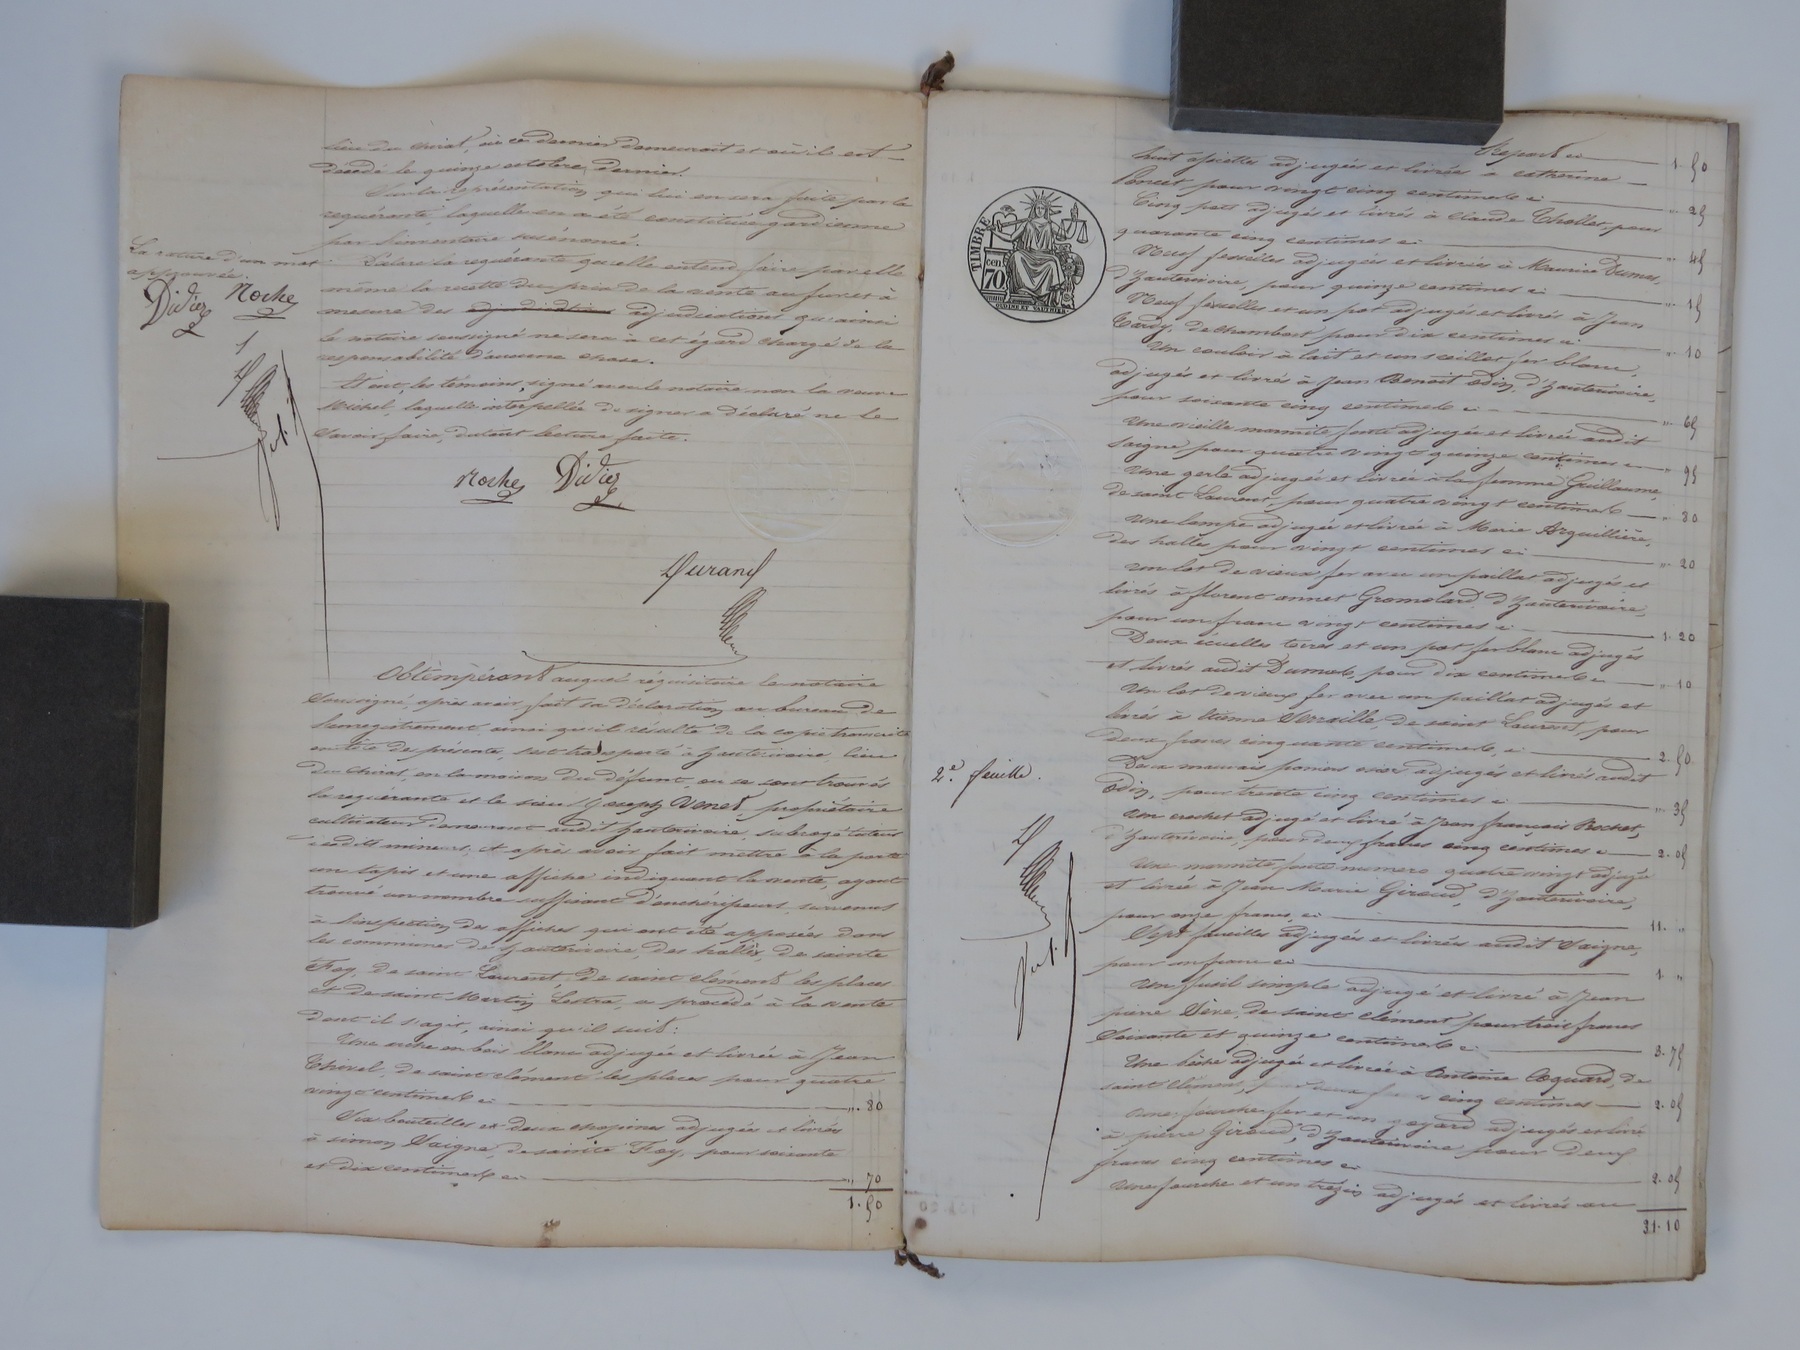 lieu du chirat, où ce dernier demeurait et où il est
décédé le quinze octobre dernier.
Sur la représentation qui lui en sera faite par la
requérante, laquelle en a été constituée gardienne
par l'inventaire susénoncé.
Déclare la requérante qu'elle entend faire par elle
même la recette du prix de la vente au fur et à
mesure des adjudications adjudications qu'ainsi
le notaire soussigné ne sera à cet égard chargé de la
responsabilité d'aucune chose.
Et ont, les témoins, signé avec le notaire non la veuve
Michel, laquelle interpellée de signer a déclaré ne le
savoir faire, du tout lecture faite.
La rature d'un mot
approuvée.
Didier Roche
Roche Didier
Durand
Obtempérant auquel réquisitoire le notaire
soussigné, après avoir fait sa déclaration au bureau de
l'enregistrement, ainsi qu'il résulte de la copie transcrite
en tête des présentes, s'est transporté à hauterivoire, lieu
du chirat, en la maison du défunt, où se sont trouvés
la requérante et le sieur Joseph Venet, propriétaire
cultivateur demeurant audit hauterivoire, subrogé tuteur
desdits mineurs, et après avoir fait mettre à la porte
un tapis et une affiche indiquant la vente, ayant
trouvé un nombre suffisant d'enchérisseurs, survenus
à l'inspection des affiches qui ont été apposées dans
les communes de hauterivoire, des halles, de sainte
Foy, de saint Laurent, de saint clément les places
et de saint Martin Lestra, a procédé à la vente
dont il s'agit, ainsi qu'il suit:
Une arche en bois blanc adjugée et livrée à Jean
Thivel, de saint clément les places pour quatre
vingt centimes ci " 80
Six bouteilles et deux chopines adjugées et livrées
à simon Saigne, de sainte Foy, pour soixante
et dix centimes ci " 70
1. 50
Report ci 1. 50
huit assiettes adjugées et livrées à catherine
Poncet, pour vingt cinq centimes ci " 25
Cinq pots adjugés et livrés à claude Thollet, pour
quarante cinq centimes ci " 45
Neuf fesselles adjugées et livrées à Maurice Dumas,
d'hauterivoire, pour quinze centimes ci " 15
Neuf fesselles et un pot adjugés et livrés à Jean
Tardy, de chambost pour dix centimes ci " 10
Un couloir à lait et un seillet fer blanc,
adjugés et livrés à Jean Benoit Odin, d'hauterivoire,
pour soixante cinq centimes ci " 65
Une vieille marmite fonte adjugée et livrée audit
Saigne pour quatre vingt quinze centimes ci " 95
Une gerle adjugée et livrée à la femme Guillaume,
de saint Laurent, pour quatre vingt centimes " 80
Une lampe adjugée et livrée à Marie Arquillière,
des halles pour vingt centimes ci " 20
Un lot de vieux fer avec un paillat adjugés et
livrés à florent annet Gromolard, d'hauterivoire,
pour un franc vingt centimes ci 1. 20
Deux écuelles terre et un pot fer blanc adjugés
et livrés audit Dumas, pour dix centimes ci " 10
Un lot de vieux fer avec un paillat adjugés et
livrés à Etienne Servaille, de saint Laurent, pour
deux francs cinquante centimes, ci 2. 50
Deux mauvais paniers osier adjugés et livrés audit
Odin, pour trente cinq centimes ci " 35
Un crochet adjugé et livré à Jean françois Rochet,
d'hauterivoire, pour deux francs cinq centimes ci 2. 05
Une marmite fonte numéro quatre vingt adjugée
et livrée à Jean Marie Giraud, d'hauterivoire,
pour onze francs, ci 11. "
Sept faucilles adjugées et livrées audit Saigne,
pour un franc ci 1 "
Un fusil simple adjugé et livré à Jean
pierre Sève, de saint clément pour trois francs
soixante et quinze centimes ci 3. 75
Une bêche adjugée et livrée à Antoine Coquard, de
saint clément, pour deux francs cinq centimes 2. 05
Une fourche fer et un goyard adjugés et livrés
à pierre Giraud, d'hauterivoire pour deux
francs cinq centimes ci 2. 05
Une fourche et un trézin adjugés et livrés au
31. 10
TIMBRE
70 cen
2e. feuille.